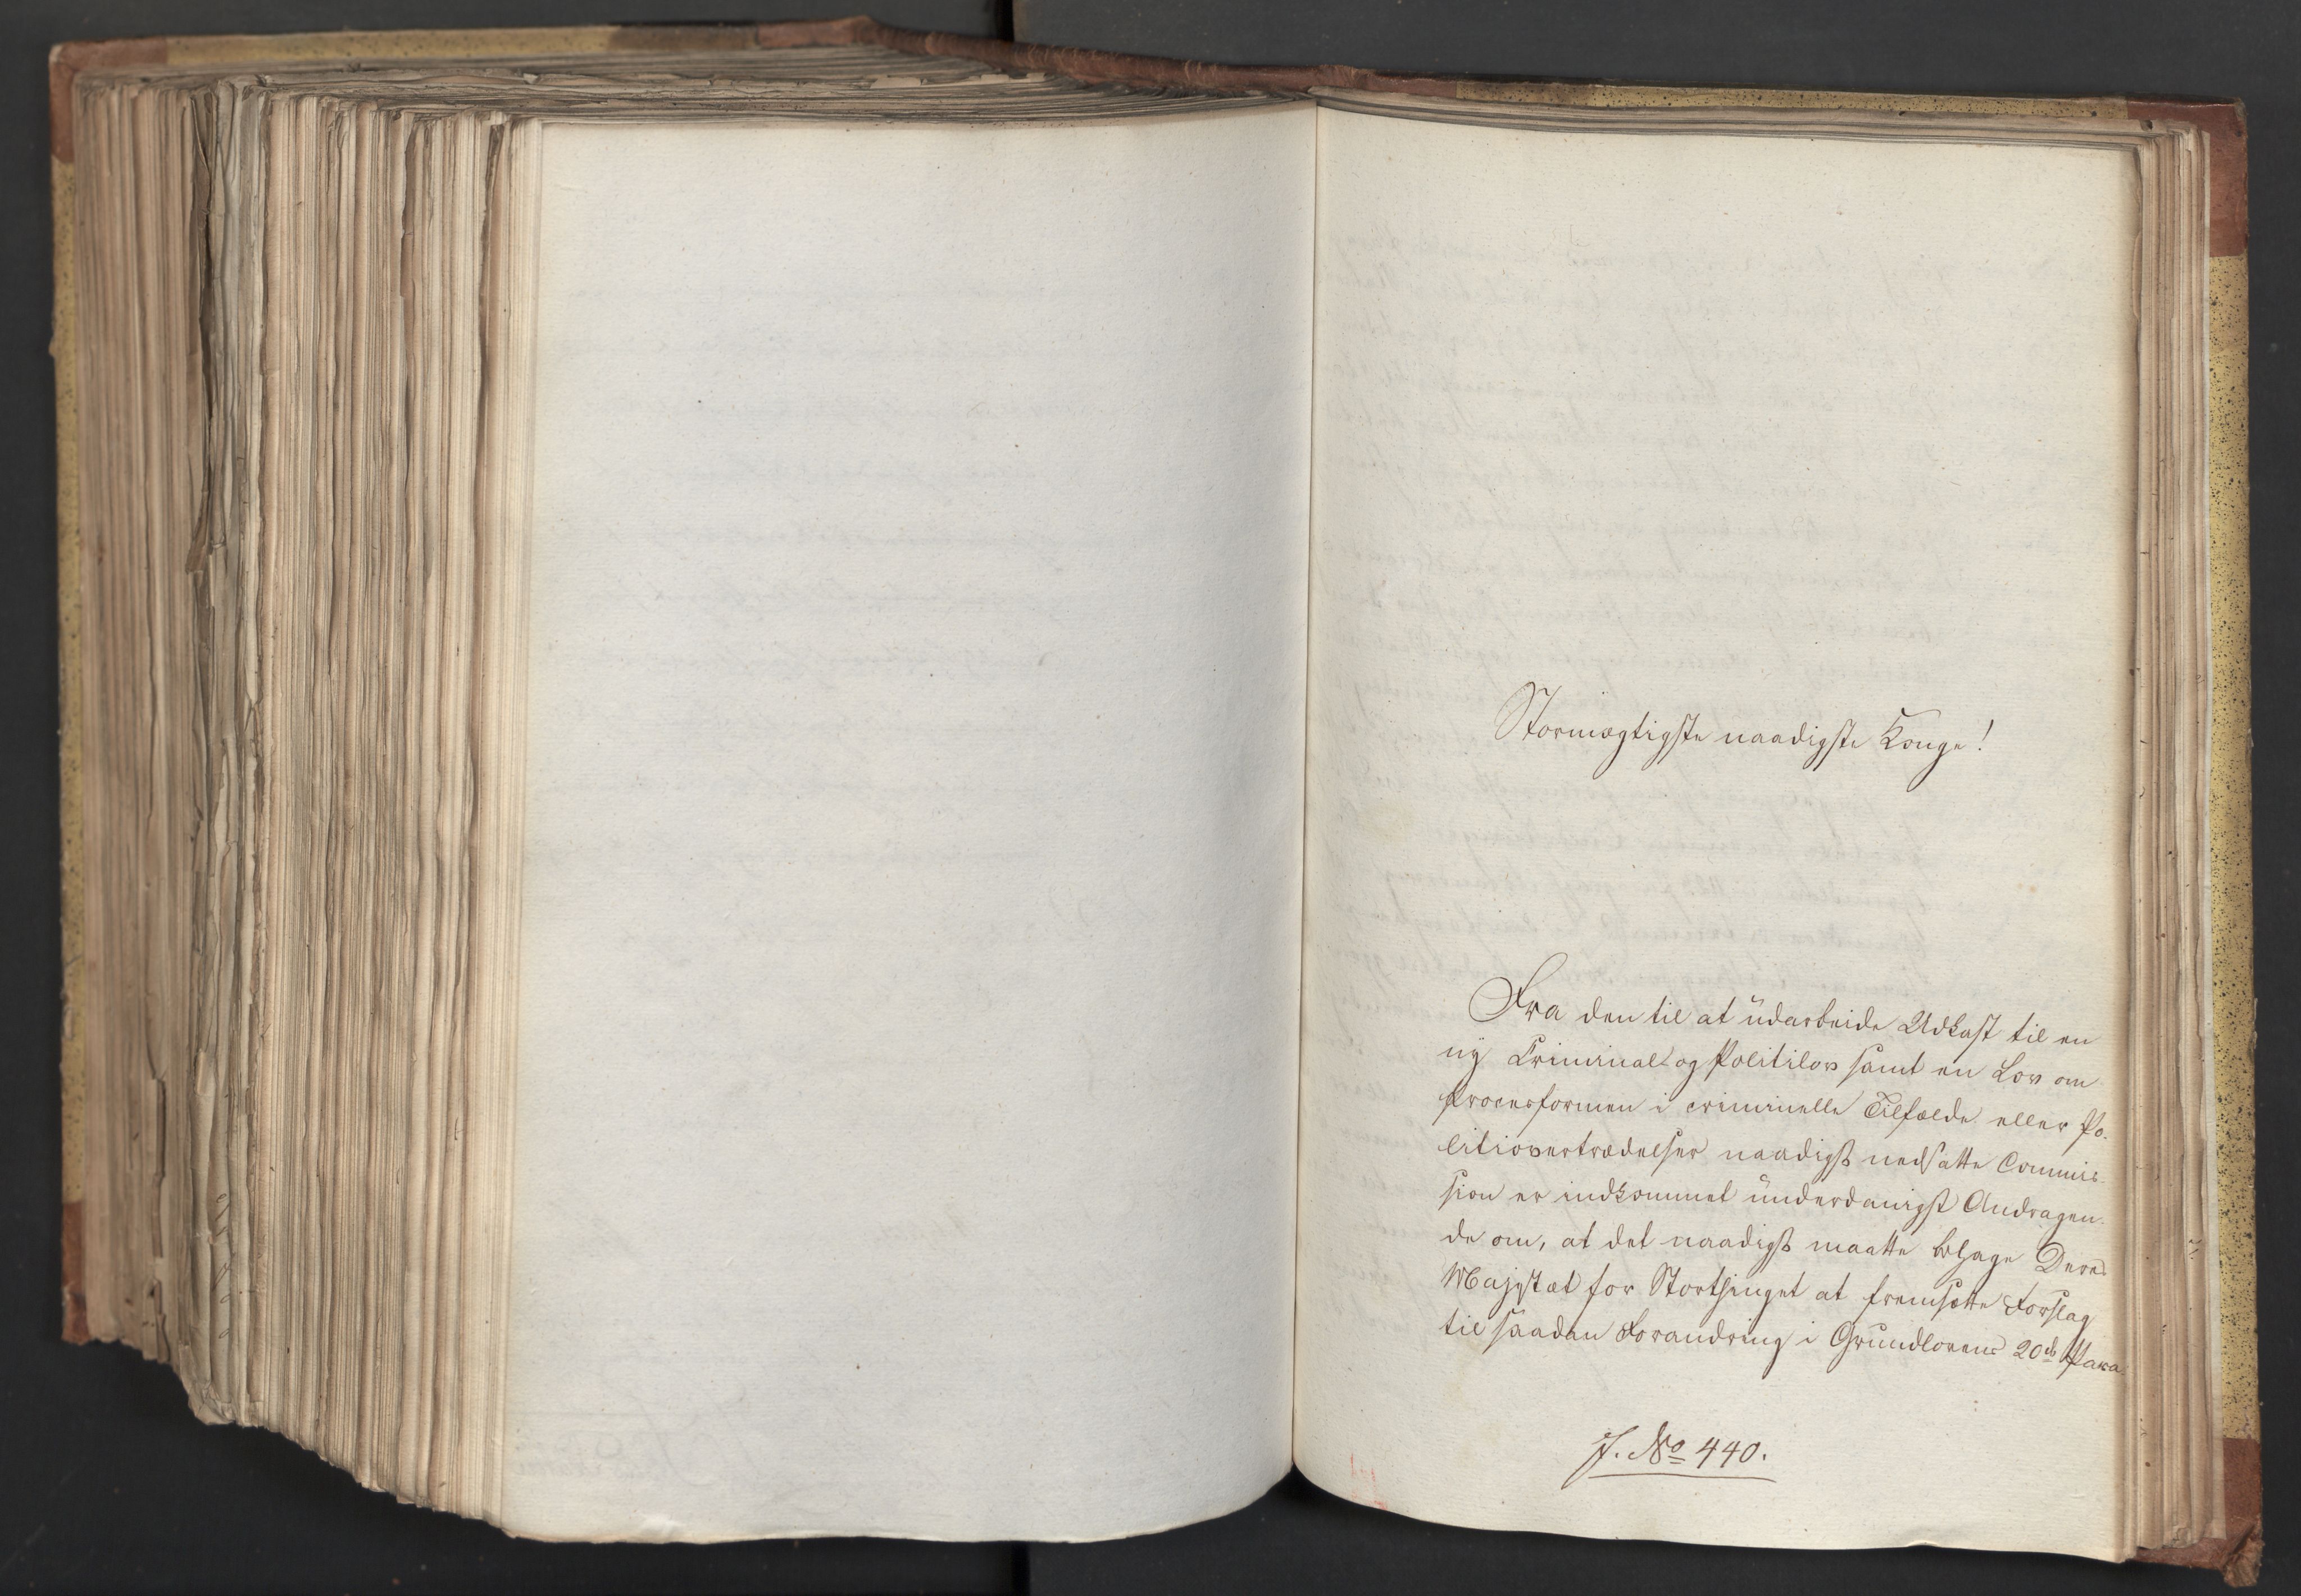 Stormægtigste naadigste Konge!
Fra den til at udarbeide Udkast til en
ny Criminal- og Politilov samt en Lov om
Procesformen i criminelle Tilfælde eller Po-
litiovertrædelser naadigst nedsatte Commis-
sion er indkommet underdanigst Andragen-
de om, at det naadigst maatte behage Deres
Majestæt for Storthinget at fremsætte Forslag
til saadan Forandring i Grundlovens 20de Para-
J. No 440.